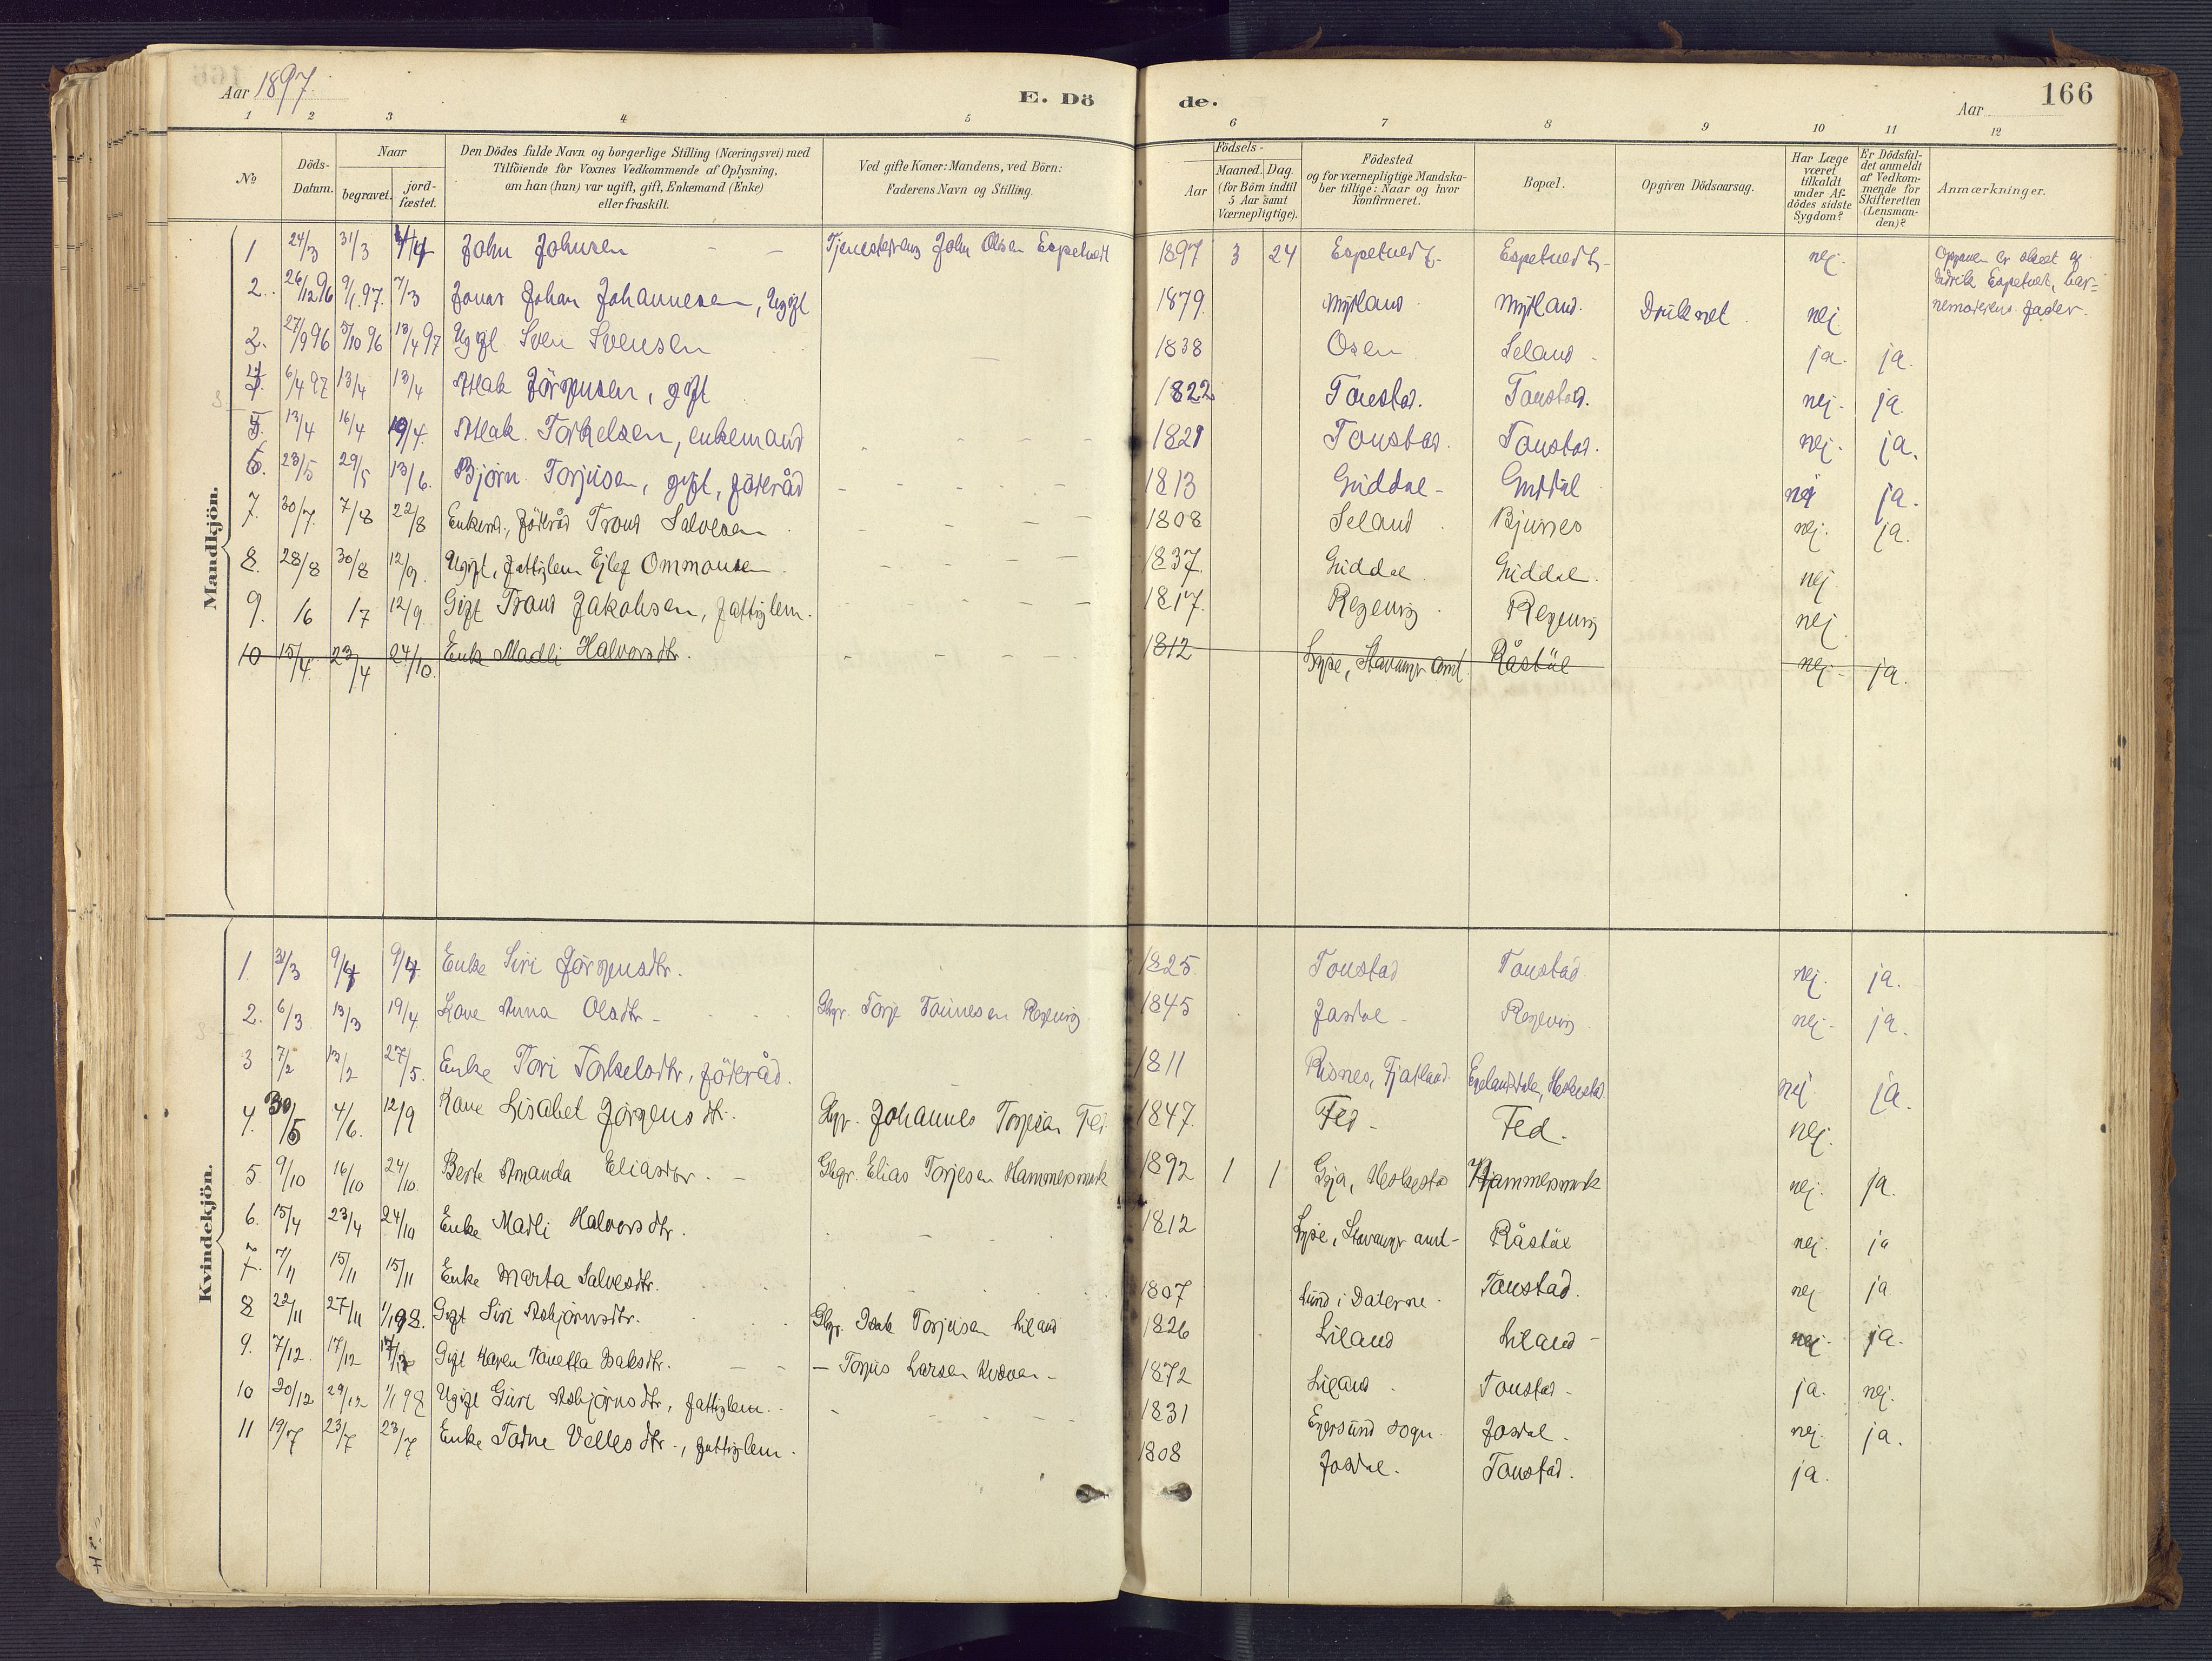 Aar 1897. E. Dö de. Aar 166
1 2 3 4 5 6 7 8 9 10 11 12
No
Döds-Datum.
Naar
begravet.
jord-fæstet.
Den Dödes fulde Navn og borgerlige Stilling (Næringsvei) med
Tilföiende for Voxnes Vedkommende af Oplysning,
om han (hun) var ugift, gift, Enkemand (Enke)
eller fraskilt.
Ved gifte Koner: Mandens, ved Börn:
Faderens Navn og Stilling.
Födsels-
Aar
Maaned. Dag.
(for Börn indtil
5 Aar samt
Værnepligtige).
Födested
og for værnepligtige Mandska-
ber tillige: Naar og hvor
konfirmeret.
Bopæl.
Opgiven Dödsaarsag.
Har Læge
været
tilkaldt
under Af-
dödes sidste
Sygdom?
Er Dödsfal-
det anmeldt
af Vedkom-
mende for
Skifteretten
(Lensman-
den)?
Anmærkninger.
Mandkjön.
1 24/3 31/3 4/4 John Johnsen - - Tjenestedreng John Olsen Espetvedt 1897 3 24 Espetvedt Espetvedt nej.
2. 26/12 96 9/1 97. 7/3 Jonas Johan Johannesen, Ugift 1879 Mydland Mydland. Druknet nej
3. 27/9 96 5/10 96 13/4 97 Ugift Sven Svensen 1838 Osen Seland ja. ja.
4 6/4 97 13/4 13/4 Atlak Jörgensen, gift 1822 Tonstad. Tonstad. nej. ja.
5. 13/4 16/4 19/4. Atlak Torkelsen, enkemand 1821 Tonstad. Tonstad. nej. ja.
6. 23/5 29/5 13/6. Björn Torjusen, gift, föderåd 1813 Guddal Guddal nej ja.
7. 30/7. 7/8 22/8 Enkem., föderåd Trond Salvesen 1808 Seland Bjunes nej. ja.
8. 28/8 30/8 12/9. Ugift, fattiglem Ejlef Ommonsen 1837. Guddal Guddal. nej
9. 16 17 12/9. Gift Trond Jakobsen, fattiglem. 1817. Regevig Regevig nej
10 15/4. 23/4 24/10. Enke Madli Halvorsdtr. 1812 Lyse, Stavanger amt. Råstöl nej. ja.
Kvindekjön.
1. 31/3 9/4 9/4 Enke Siri Jörgensdtr. 1825. Tonstad Tonstad. nej. ja.
2. 6/3 13/3 19/4. Kone Anna Olsdtr. Gbgr. Torje Tönnesen Regevig 1845 Josdal Regevig nej. ja.
3 7/2 13/2 27/5. Enke Tori Torkelsdtr, föderåd. 1811 Risnes, Fjotland Egelandsdal, Heskestad nej. ja.
4. 30/5 4/6. 12/9 Kone Lisabet Jörgensdtr. Gbgr. Johannes Torjesen Fed 1847. Fed. Fed. nej.
5. 9/10 16/10 24/10. Berte Amanda Eliasdtr. Gbgr. Elias Torjesen Hammersmark 1892 1 1 Gya, Heskestad Hammersmark nej. ja.
6. 15/4 23/4 24/10 Enke Madli Halvorsdtr. 1812 Lyse, Stavanger amt. Råstöl nej. ja
7. 7/11 15/11 15/11 Enke Marta Salvesdtr. 1807 Lund i Dalerne. Tonstad. nej ja
8 22/11 27/11 1/1 98. Gift Siri Asbjörnsdtr. Gbgr. Isak Torjusen Liland 1826 Liland Liland nej. ja.
9. 7/12. 17/12 17/12 Gift Karen Tonetta Isaksdtr. - Torjus Larsen Kvdven. 1872 Liland Tonstad. ja. nej.
10 20/12 29/12 1/1 98 Ugift Guri Asbjörnsdtr, fattiglem. 1831 Egersund sogn. Josdal. nej. ja.
11 19/7 23/7 23/7 Enke Tadne Vellesdtr., fattiglem. 1808 Josdal. Tonstad. ja.